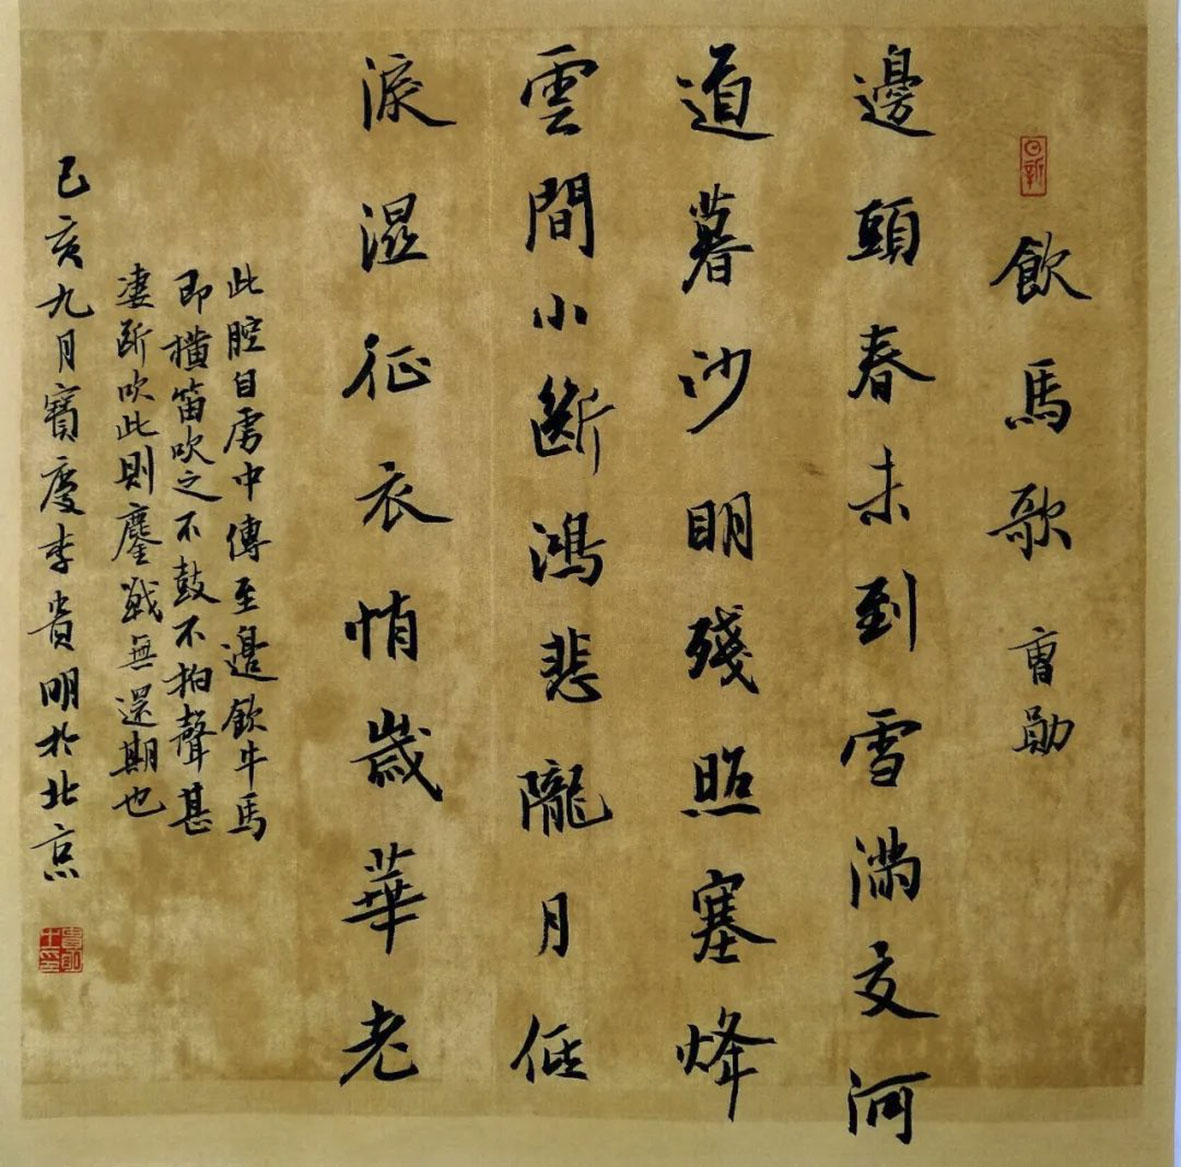 日新
飲馬歌 曹勛
邊頭春未到雪滿交河
道暮沙明殘照塞烽
雲間小斷鴻悲隴月低
淚濕征衣悄歲華老
此腔自虜中傳至邊飲牛馬
即橫笛吹之不鼓不拍聲甚
淒斷吹此則鏖戰無還期也
己亥九月寶慶李貴明於北京